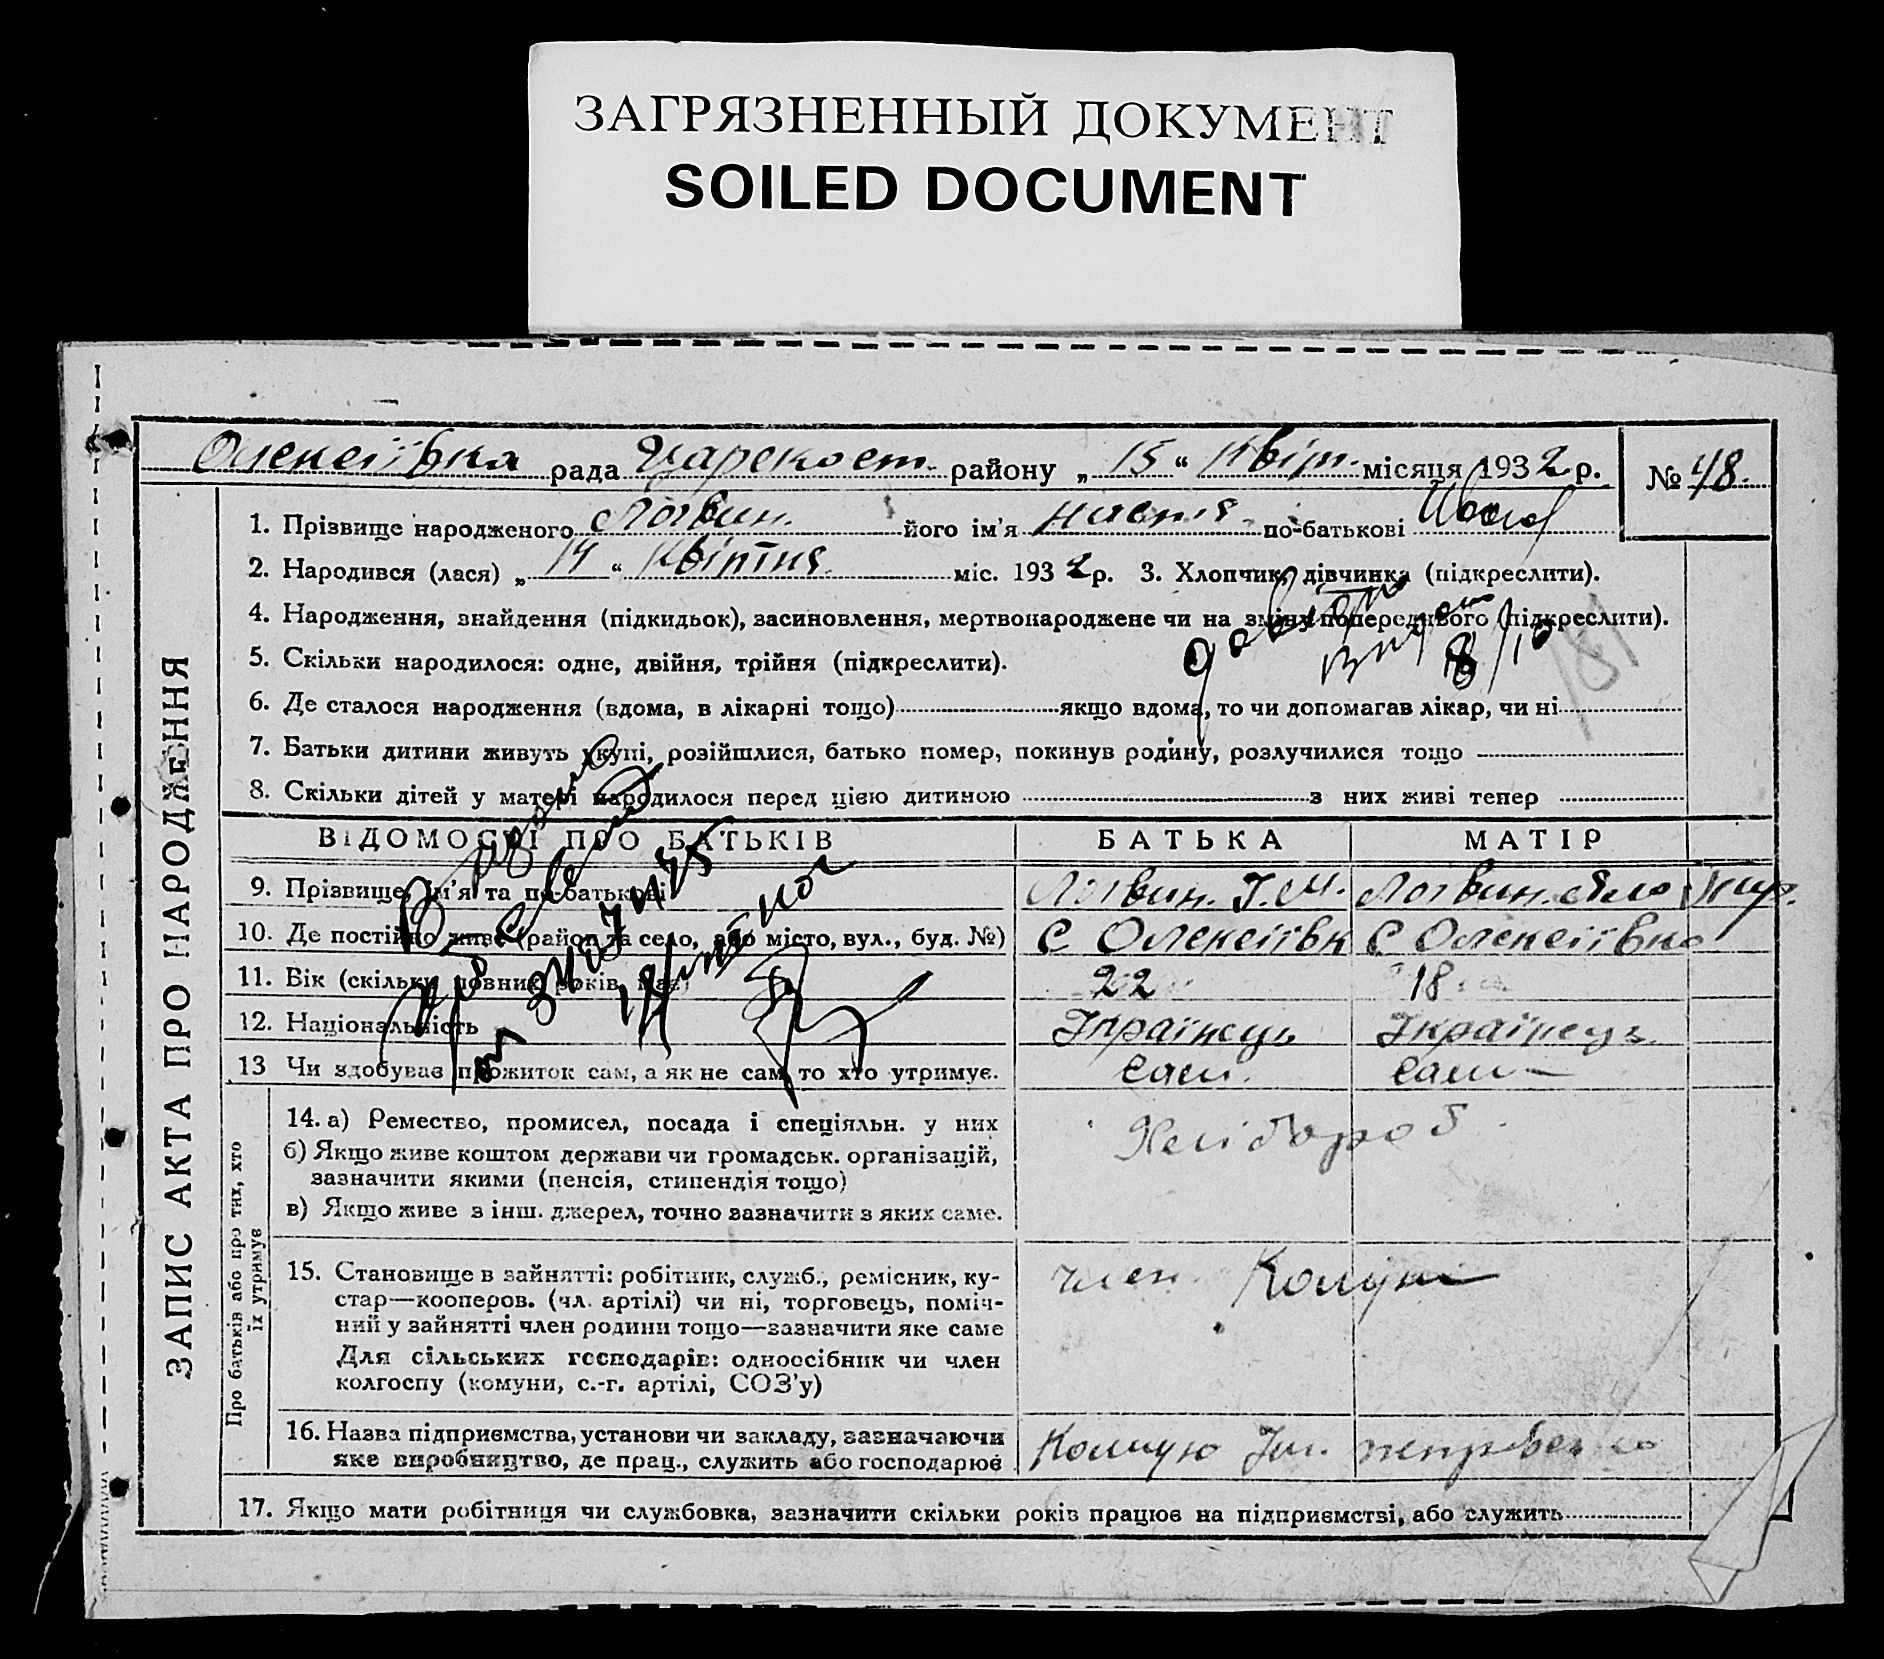 ЗАГРЯЗНЕННЫЙ ДОКУМЕНТ
SOILED DOCUMENT
Олексіївка рада Царекост. району „ 15 “ Квіт. місяця 1932 р. № 48.
1. Прізвище народженого Логвин. його ім'я настя по-батькові
2. Народився (лася) „ 14 “ Квітня міс. 1932 р. 3. Хлопчик, дівчинка (підкреслити).
4. Народження, знайдення (підкидьок), засиновлення, мертвонароджене чи на зміну попереднього (підкреслити).
5. Скільки народилося: одне, двійня, трійня (підкреслити).
8/10
181
6. Де сталося народження (вдома, в лікарні тощо) якщо вдома, то чи допомагав лікар, чи ні
7. Батьки дитини живуть укупі, розійшлися, батько помер, покинув родину, розлучилися тощо
8. Скільки дітей у матері народилося перед цією дитиною з них живі тепер
ВІДОМОСТІ ПРО БАТЬКІВ БАТЬКА МАТІР
9. Прізвище, ім'я та по-батькові Логвин. І. М. Логвин.
10. Де постійно живе (район та село, або місто, вул., буд. №) С Олексіївк С Олексіївка
11. Вік (скільки повних років має) 22 18
12. Національність Українець Українець
13 Чи здобуває прожиток сам, а як не сам, то хто утримує. Сам. Сам
14. а) Ремество, промисел, посада і спеціяльн. у них Хлібороб
б) Якщо живе коштом держави чи громадськ. організацій,
зазначити якими (пенсія, стипендія тощо)
в) Якщо живе з інш. джерел, точно зазначити з яких саме.
15. Становище в зайнятті: робітник, служб., ремісник, ку-
стар—кооперов. (чл. артілі) чи ні, торговець, поміч-
ний у зайнятті член родини тощо—зазначити яке саме
член Комуни
Для сільських господарів: одноосібник чи член
колгоспу (комуни, с.-г. артілі, СОЗ'у)
16. Назва підприємства, установи чи закладу, зазначаючи
яке виробництво, де прац., служить або господарює
17. Якщо мати робітниця чи службовка, зазначити скільки років працює на підприємстві, або служить
ЗАПИС АКТА ПРО НАРОДЖЕННЯ
Про батьків або про тих, хто
їх утримує